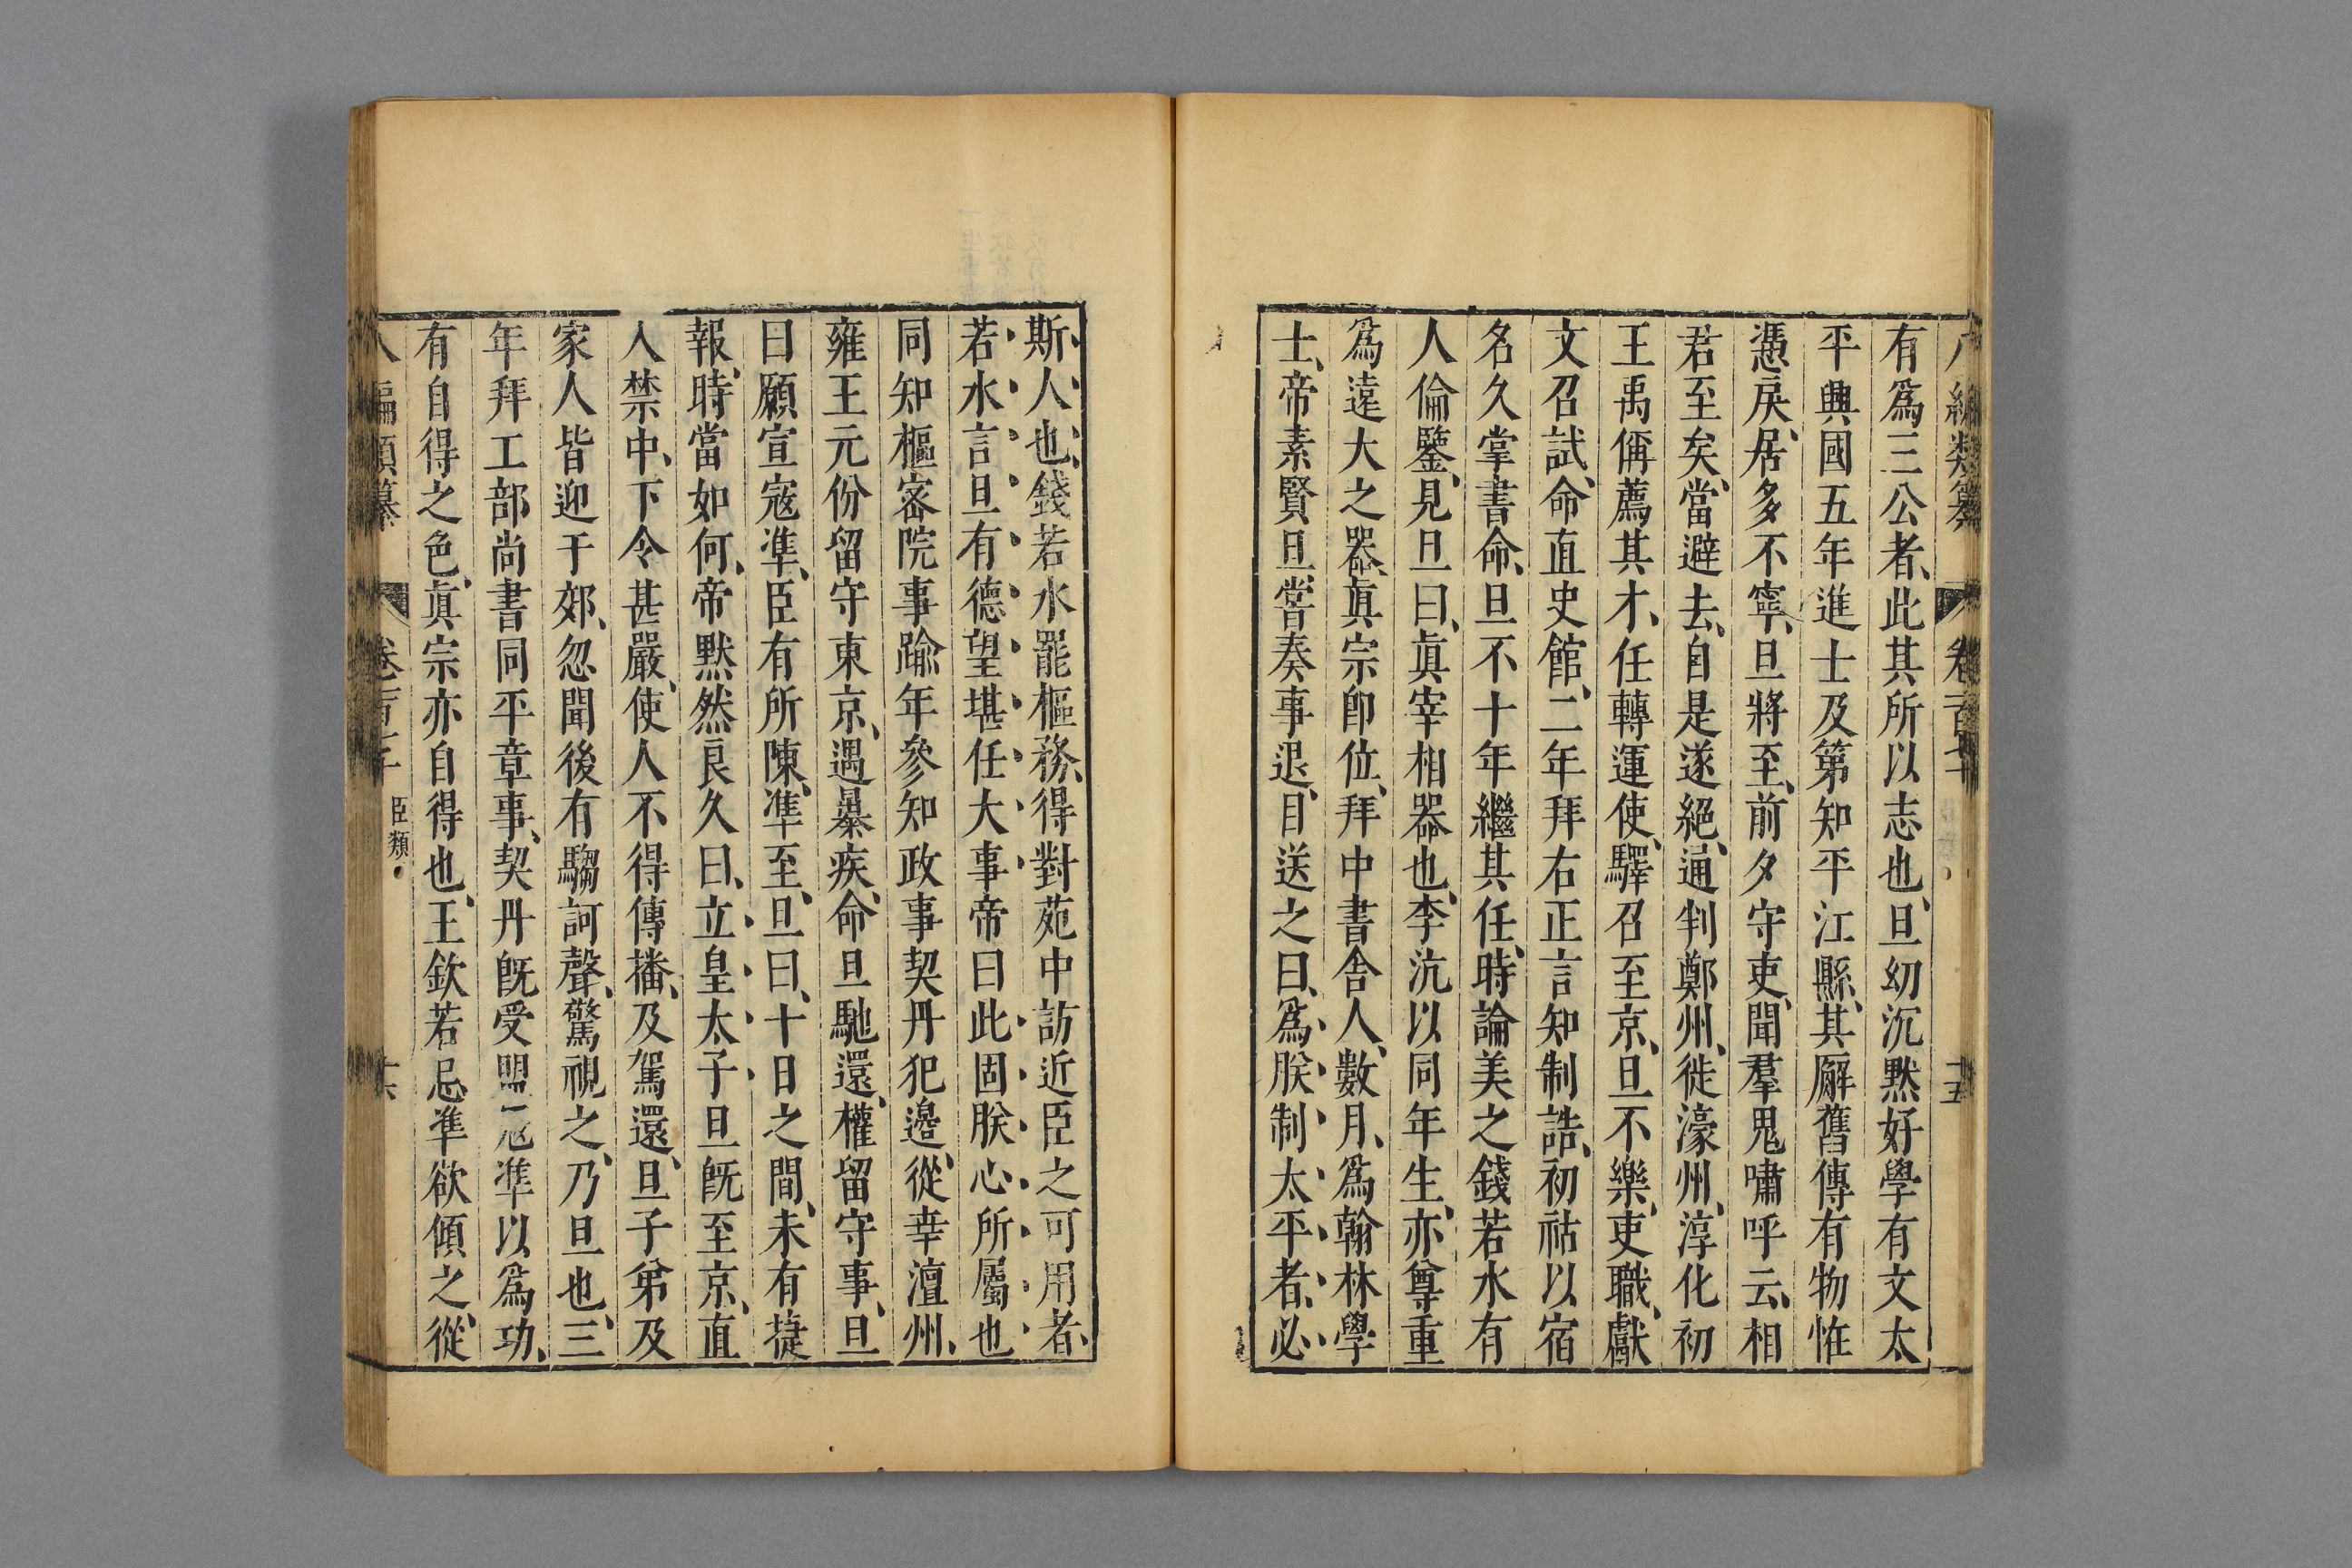 有爲三公者、此其所以志也、旦幼沉默好學有文太
平興國五年進士及第知平江縣、其廨舊傳有物恠
憑戾、居多不寧、旦將至、前夕守吏、聞羣鬼嘯呼云、相
君至矣、當避去、自是遂絕、通判鄭州、徙濠州、淳化初
王禹偁薦其才、任轉運使、驛召至京、旦不樂、吏職、獻
文召試、命直史館、二年拜右正言知制誥、初祜以宿
名久掌書命、旦不十年繼其任、時論美之錢若水有
人倫鑒、見旦曰、眞宰相器也、李沆以同年生、亦尊重
爲遠大之器、眞宗卽位、拜中書舍人、數月、爲翰林學
士、帝素賢旦、嘗奏事退、目送之曰、爲朕制太平者、必
斯人也、錢若水罷樞務、得對苑中訪近臣之可用者、
若水言旦有德望堪任大事帝曰此固朕心所屬也
同知樞密院事踰年參知政事契丹犯邊、從幸澶州、
雍王元份留守東京、遇暴疾、命旦馳還、權留守事、旦
曰願宣寇準、臣有所陳、準至、旦曰、十日之間、未有捷
報、時當如何、帝默然良久曰、立皇太子旦旣至京、直
入禁中、下令甚嚴、使人不得傳播、及駕還、旦子弟及
家人皆迎于郊、忽聞後有騶訶聲、驚視之、乃旦也、三
年拜工部尚書同平章事、契丹旣受盟寇準以爲功、
有自得之色、眞宗亦自得也、王欽若忌準欲傾之、從
八編類纂 卷百二十 臣類 十六